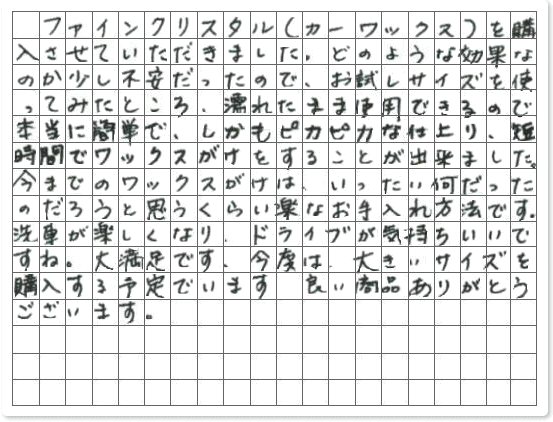 ファインクリスタル(カーワックス)を購
入させていただきました。どのような効果な
のか少し不安だったので、お試しサイズを使
ってみたところ、濡れたまま使用できるので
本当に簡単で、しかもピカピカな仕上り、短
時間でワックスがけをすることが出来ました。
今までのワックスがけは、いったい何だった
のだろうと思うくらい楽なお手入れ方法です。
洗車が楽しくなり、ドライブが気持ちいいで
すね。大満足です。今度は、大きいサイズを
購入する予定でいます 良い商品ありがとう
ございます。